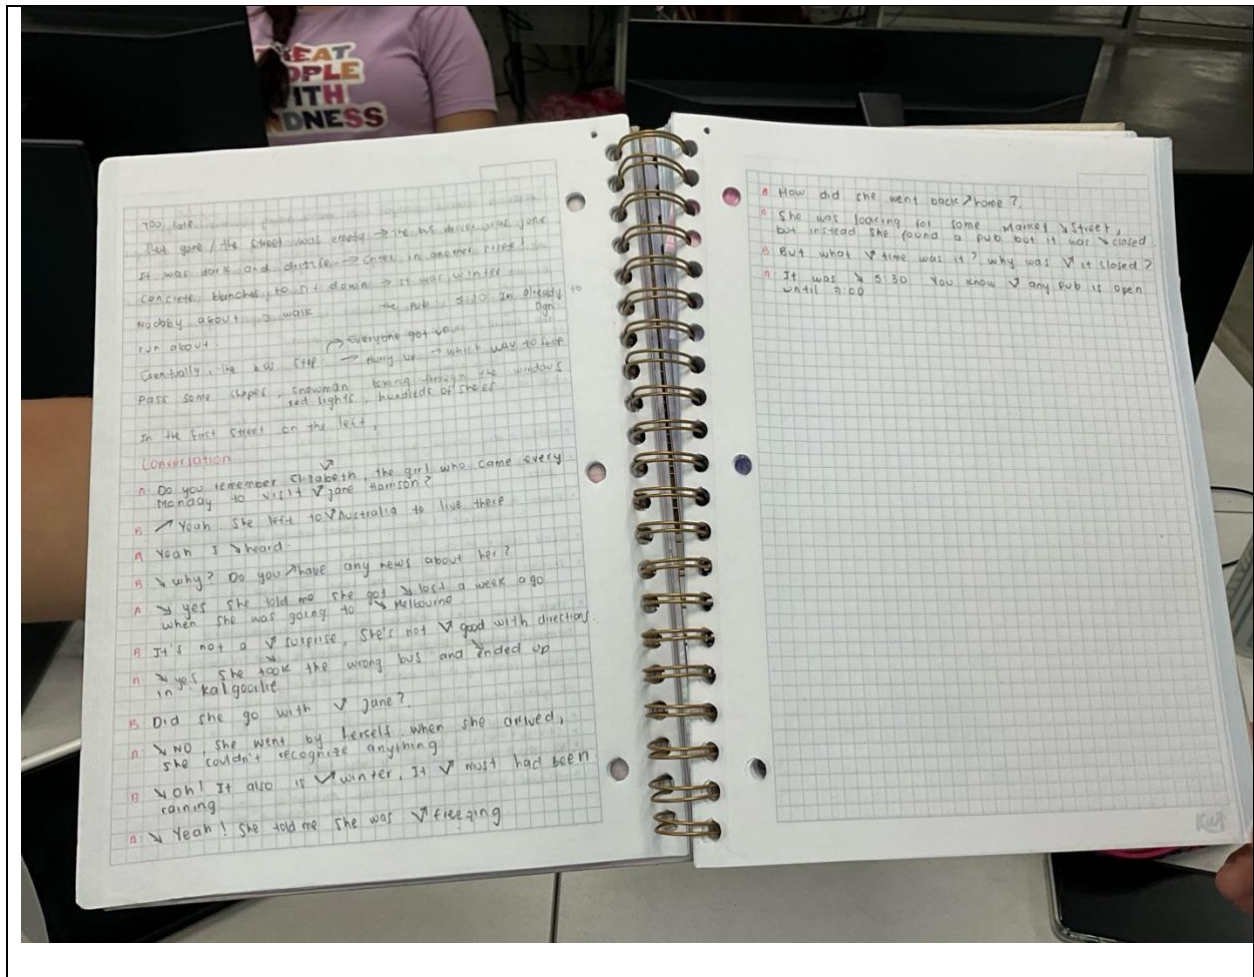 TREAT
PEOPLE
WITH
KINDNESS
Too late
gone / the street was empty → the bus driver was gone
It was dark and drizzle → in another
concrete blanches, to sit down → It was winter
Noddby about, walk the pub 5:30 In already to
run about sign
everyone got up
Eventually, the bus stop → hung up → which way to stop
Pass some shopes, snowman looking through the windows
red lights, hundreds of shoes
In the first street on the left,
Conversation
A Do you remember Elizabeth, the girl who came every
Monday to visit jane Harrison?
B ↗ Yeah She left to Australia to live there
A Yeah I ↘ heard
B ↘ why? Do you ↗ have any news about her?
A ↘ yes she told me she got ↘ lost a week ago
when she was going to ↘ Melbourne
B It's not a surprise, She's not good with directions.
A ↘ yes she took the wrong bus and ended up
in Kalgoorlie
B Did she go with jane?
A ↘ NO, she went by herself when she arrived,
she couldn't recognize anything
B ↘ oh! It also is winter, It must had been
raining
A ↘ Yeah! She told me she was freezing
A How did she went back ↗ home?
A She was loocing for some Market ↘ Street,
but instead she found a pub but it was ↘ closed
B But what time was it? why was it closed?
A It was ↘ 5:30 You know any pub is open
until 7:00